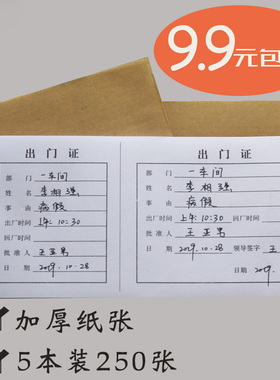 9.9元包
出门证
部门 一车间
姓名 李相强
事由 病假
出厂时间 上午10:30
回厂时间
批准人 王亚男
日期 2019.10.28
出门证
部门 一车间
姓名 李相强
事由 病假
出厂时间 上午10:30 回厂时间
批准人 王亚男
日期 2019.10.28 领导签字 王
日期 2019.
加厚纸张
5本装250张